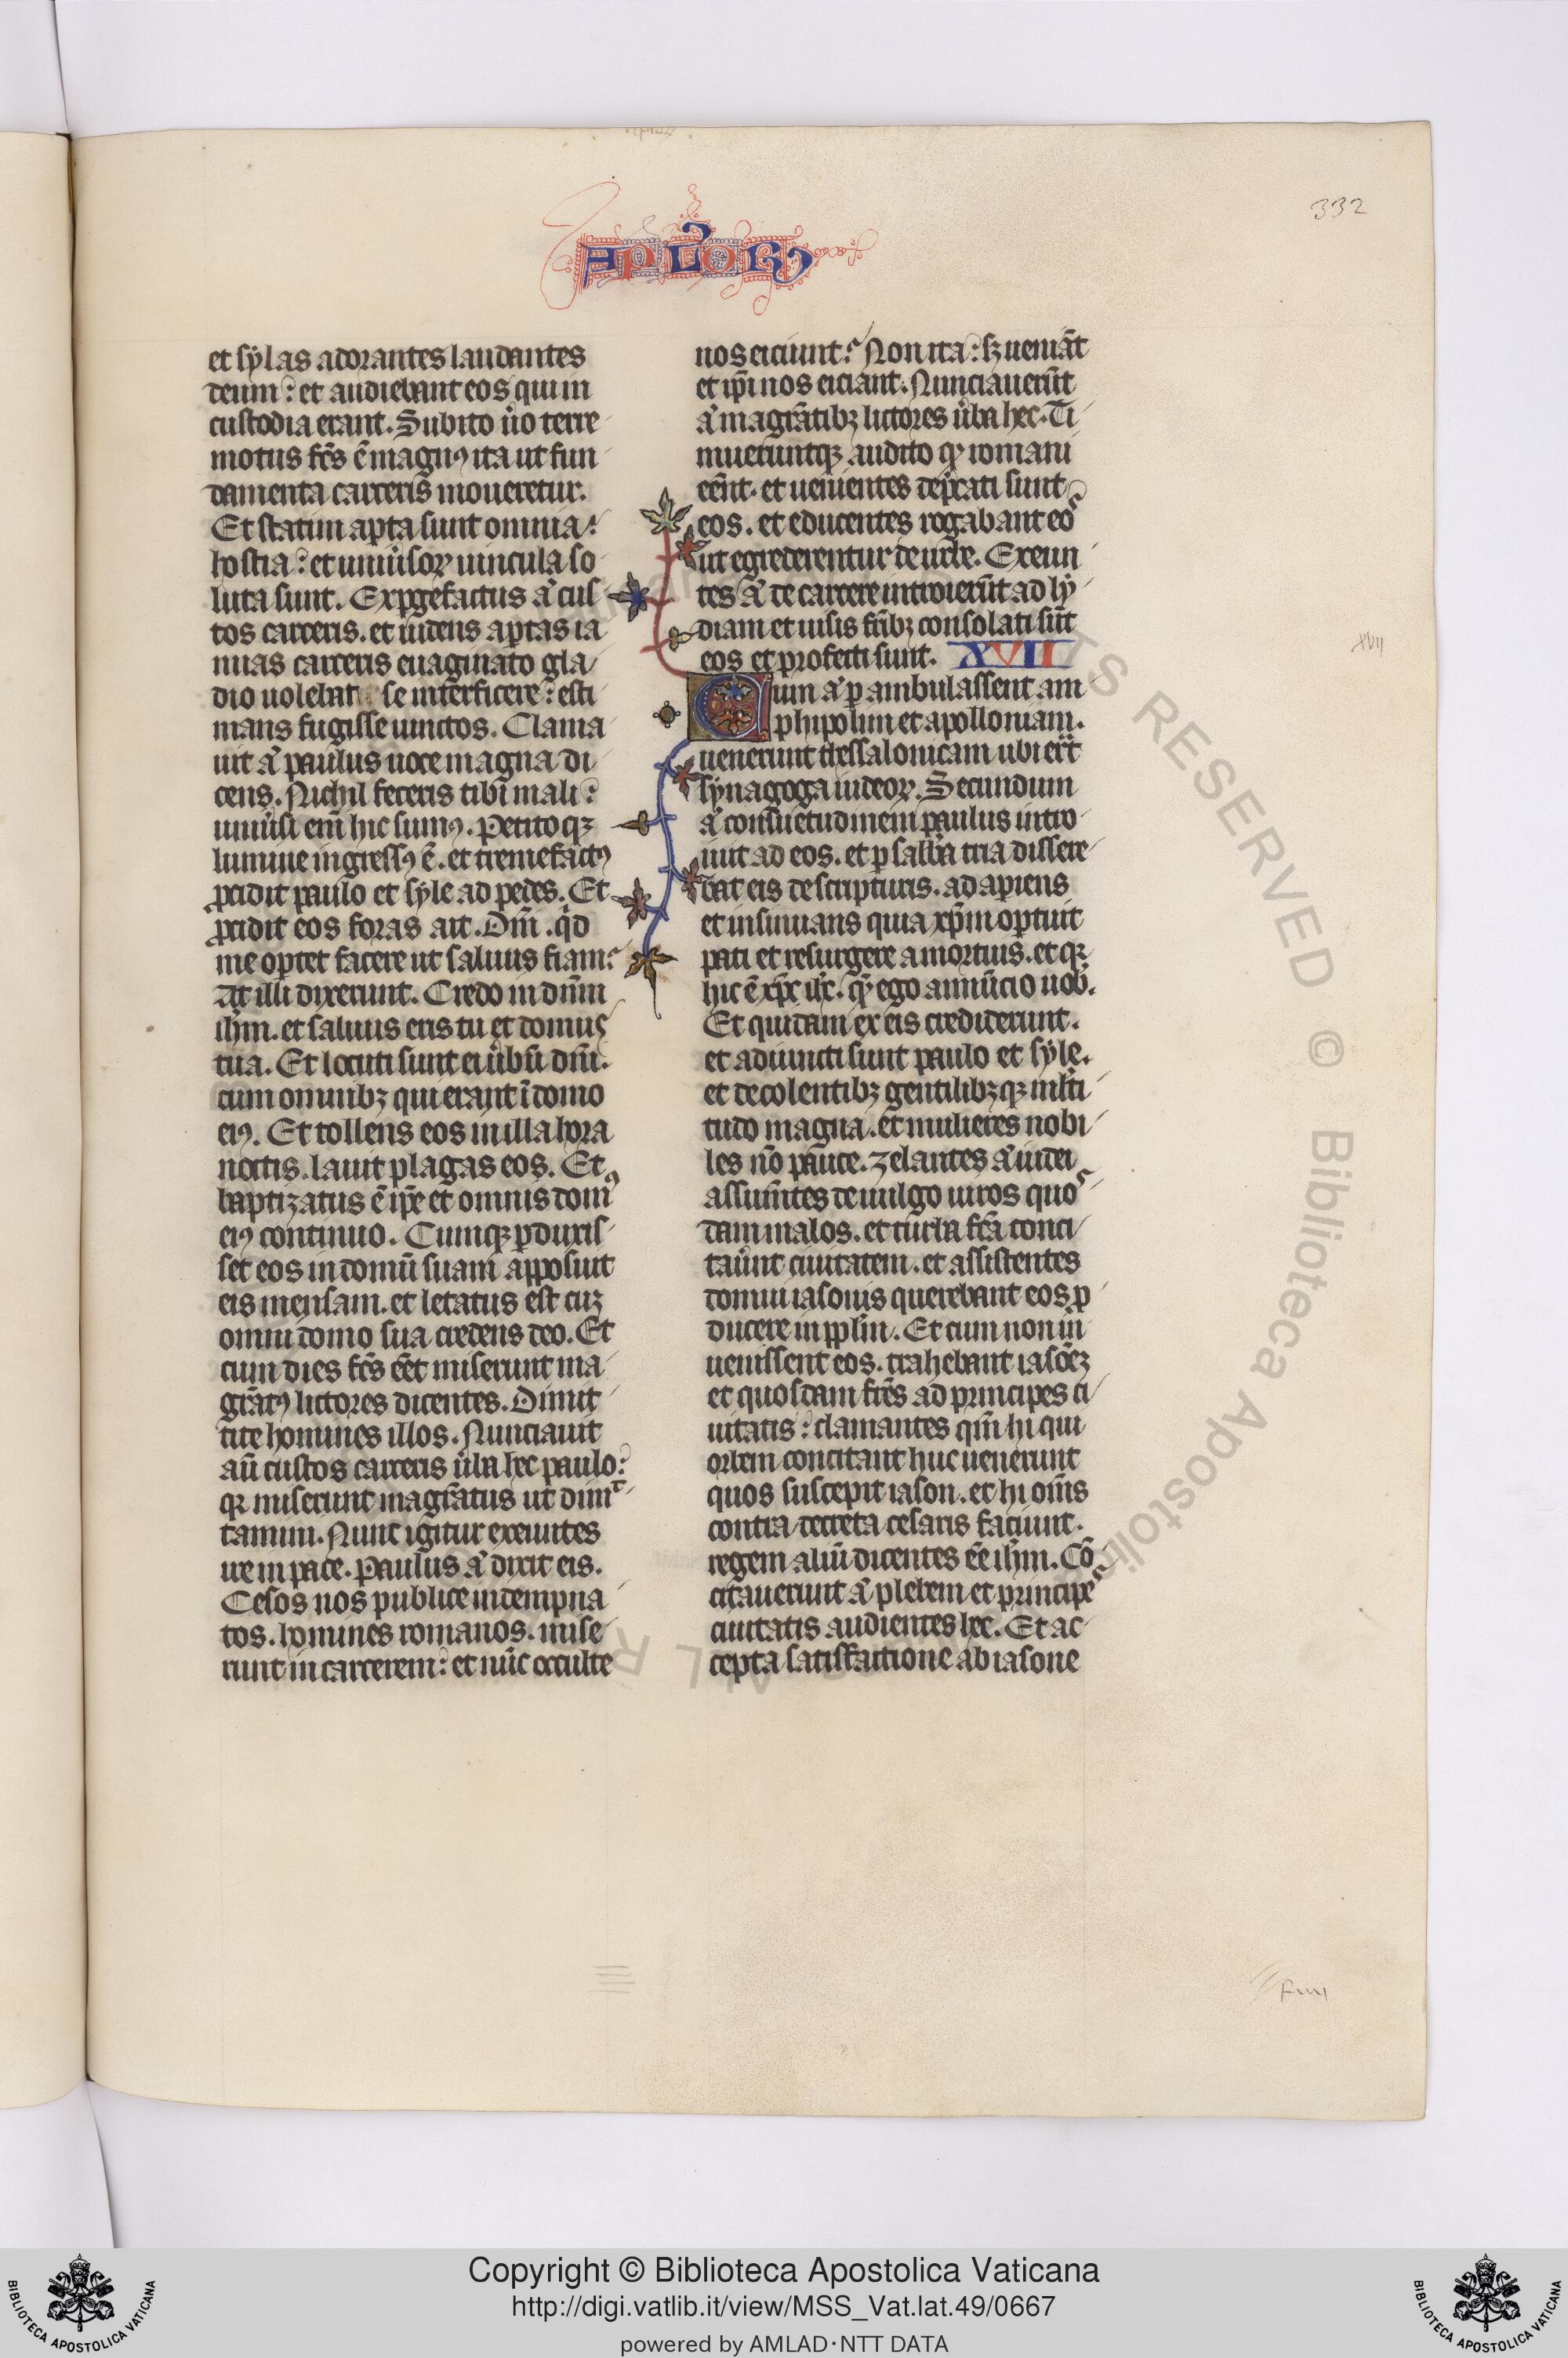 332
APLORꝜ
et sẏlas adorantes laudantes
deum: et audiebant eos qui in
custodia erant. Subito ůo terre
motus fc̄s ē magnꝰ ita ut fun
damenta carceris moueretur.
Et statim apta sunt omnia
hostia: et uniůsoꝝ uincula so
luta sunt. Expgefactus aͣ cus
tos carceris. et uidens aptas ia
nuas carceris euaginato gla
dio uolebat se interficere: esti
mans fugisse uinctos. Clama
uit aͣ paulus uoce magna di
cens. Nichil feceris tibi mali:
uniůsi em̄ hic sumꝰ. Petitoqꝫ
lumine ingressꝰ ē. et tremefactꝰ
ꝓcidit paulo et syle ad pedes. Et
ꝓcidit eos foras ait. Dn̄i. qͥd
me optet facere ut saluus fiam?
At illi dixerunt. Credo in dn̄m
ih̄m. et saluus eris tu et domꝰ
tua. Et locuti sunt ei ůbū dn̄i.
cum omnibꝫ qui erant ī domo
eiꝰ. Et tollens eos in illa hora
noctis. lauit plagas eos. Et
baptizatus ē ip̄e et omnis domꝰ
eiꝰ continuo. Cumqꝫ pduxis
set eos in domū suam apposuit
eis mensam. et letatus est cuꝫ
omni domo sua credens deo. Et
cum dies fc̄s eēt miserunt ma
gr̄atꝰ lictores dicentes. Dimit
tite homines illos. Nunciauit
aū custos carceris ůba hec paulo:
qꝛ miserunt magr̄atus ut dimͭ
tamini. Nunc igitur exeuntes
ite in pace. Paulus aͣ dixit eis.
Cesos nos publice indempna
tos. homines romanos. mise
runt in carcerem: et nūc occulte
nos eiciunt? Non ita: sꝫ ueniāt
et ip̄i nos eiciant. Nunciauerūt
aͣ magr̄atibꝫ lictores ůba hec. Ti
mueruntqꝫ audito qͩ romani
eēnt. et uenientes dep̄cati sunt
eos. et educentes rogabant eoˢ
ut egrederentur de urbe. Exeun
tes aͣ de carcere introierūt ad lẏ
diam et uisis fr̄ibꝫ consolati sūt
eos et profecti sunt. XVII
Cum aͣ pambulassent am
phipolim et apolloniam.
uenerunt thessalonicam ubi er̄t
sẏnagoga iudeoꝝ. Secundum
aͣ consuetudinem paulus intro
iuit ad eos. et p sabb̄a tria dissere
bat eis de scripturis. adapiens
et insinuans quia xp̄m optuit
pati et resurgere a mortuis. et qꝛ
hic ē xp̄c ih̄c. qͫ ego annūcio uob̄.
Et quidam ex eis crediderunt.
et adiuncti sunt paulo et sẏle.
et de colentibꝫ gentilibꝫqꝫ ml̄ti
tudo magna. et mulieres nobi
les nō pauce. Zelantes aͣ iudei
assum̄tes de uulgo uiros quoˢ
dam malos. et turba fc̄a conci
taůnt ciuitatem. et assistentes
domui iasonis querebant eos ꝓ
ducere in ppl̄m. Et cum non in
uenissent eos. trahebant iasōeꝫ
et quosdam fr̄es ad principes ci
uitatis: clamantes qm̄ hi qui
orbem concitant huc uenerunt
quos suscepit iason. et hi om̄s
contra decreta cesaris faciunt.
regem aliū dicentes eē ih̄m. Cō
citauerunt aͣ plebem et principeˢ
ciuitatis audientes hec. Et ac
cepta satisfactione ab iasone
XVII
Copyright © Biblioteca Apostolica Vaticana
http://digi.vatlib.it/view/MSS_Vat.lat.49/0667
powered by AMLAD·NTT DATA